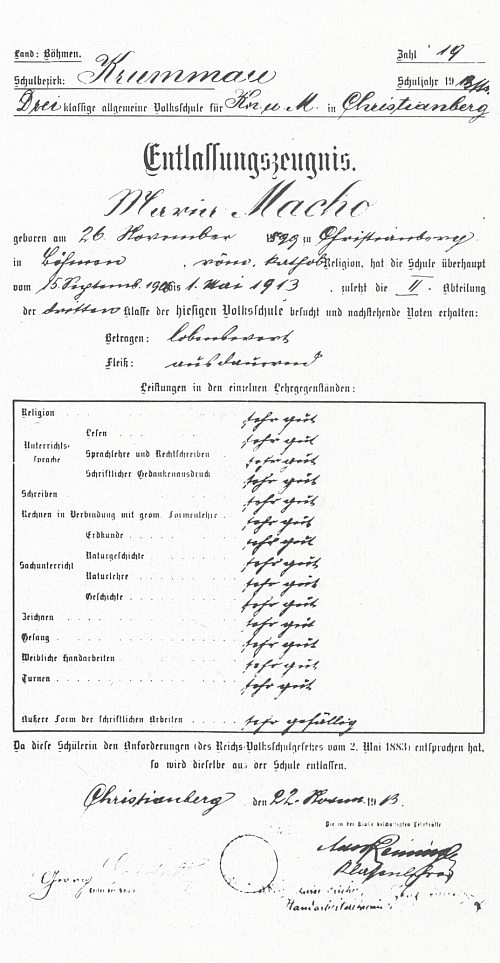 Land: Böhmen. Zahl 19
Schulbezirk: Krummau Schuljahr 19
Drei klassige allgemeine Volksschule für Kn. u. M. in Christianberg
Entlassungszeugnis.
Maria Macho
geboren am 26. November 1899 zu Christianberg
in Böhmen, röm. kathol. Religion, hat die Schule überhaupt
vom 15. Septemb. 1906 bis 1. Mai 1913, zuletzt die II. Abteilung
der dritten Klasse der hiesigen Volksschule besucht und nachstehende Noten erhalten:
Betragen: lobenswert
Fleiß: ausdauernd
Leistungen in den einzelnen Lehrgegenständen:
Religion sehr gut
Unterrichtssprache
Lesen sehr gut
Sprachlehre und Rechtschreiben sehr gut
Schriftlicher Gedankenausdruck sehr gut
Schreiben sehr gut
Rechnen in Verbindung mit geom. Formenlehre sehr gut
Sachunterricht
Erdkunde sehr gut
Naturgeschichte sehr gut
Naturlehre sehr gut
Geschichte sehr gut
Zeichnen sehr gut
Gesang sehr gut
Weibliche Handarbeiten sehr gut
Turnen sehr gut
Äußere Form der schriftlichen Arbeiten sehr gefällig
Da diese Schülerin den Anforderungen (des Reichs-Volksschulgesetzes vom 2. Mai 1883) entsprochen hat,
so wird dieselbe aus der Schule entlassen.
Christianberg den 22. Novem. 1913.
Die in der Klasse beschäftigten Lehrkräfte
Georg
Leiter der Schule